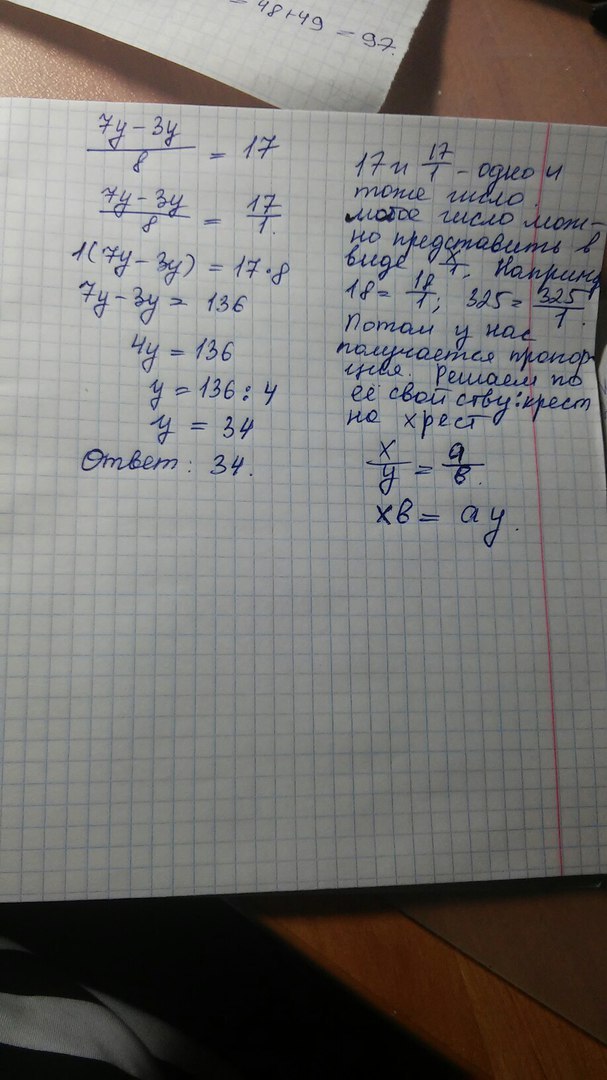 = 48+49 = 97.
(7y-3y)/8 = 17
(7y-3y)/8 = 17/1.
1(7y-3y) = 17·8
7y-3y = 136
4y = 136
y = 136 : 4
y = 34
Ответ: 34.
17 и 17/1 - одно и
тоже число.
любое число мож-
но представить в
виде x/1. Например
18 = 18/1; 325 = 325/1.
Потом у нас
получается пропор-
ция. Решаем по
её свойству: крест
на хрест
x/y = a/в.
xв = ay.